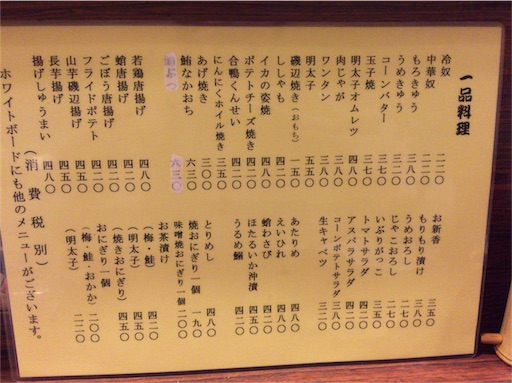 一品料理
冷奴 二二〇
中華奴 三二〇
もろきゅう 三八〇
うめきゅう 三二〇
コーンバター 三七〇
玉子焼 三七〇
明太子オムレツ 四八〇
肉じゃが 三八〇
ワンタン 三五〇
明太子 五五〇
磯辺焼き(おもち) 一五〇
ししゃも 四二〇
イカの姿焼 四八〇
ポテトチーズ焼き 四二〇
合鴨くんせい 四二〇
にんにくホイル焼き 三五〇
あげ焼き 三〇〇
鮪なかおち 六三〇
ぶつ 六三〇
若鶏唐揚げ 四八〇
蛸唐揚げ 四二〇
ごぼう唐揚げ 四二〇
フライドポテト 四二〇
山芋磯辺揚げ 四五〇
長芋揚げ 四五〇
揚げしゅうまい 四八〇
お新香 三五〇
もりもり漬け 三八〇
うめおろし 二七〇
じゃこおろし 二七〇
いぶりがっこ 三五〇
トマトサラダ 四二〇
アスパラサラダ 四二〇
コーンポテトサラダ 三八〇
生キャベツ 三二〇
あたりめ 四八〇
えいひれ 四八〇
蛸わさび 四二〇
ほたるいか沖漬 四五〇
うるめ鰯 四二〇
とりめし 四八〇
焼おにぎり一個 一九〇
味噌焼おにぎり一個 二〇〇
お茶漬け
(梅・鮭) 四二〇
(明太子) 四五〇
(焼きおにぎり) 四五〇
おにぎり一個
(梅・鮭・おかか) 二〇〇
(明太子) 二二〇
(消費税別)
ホワイトボードにも他のメニューがございます。